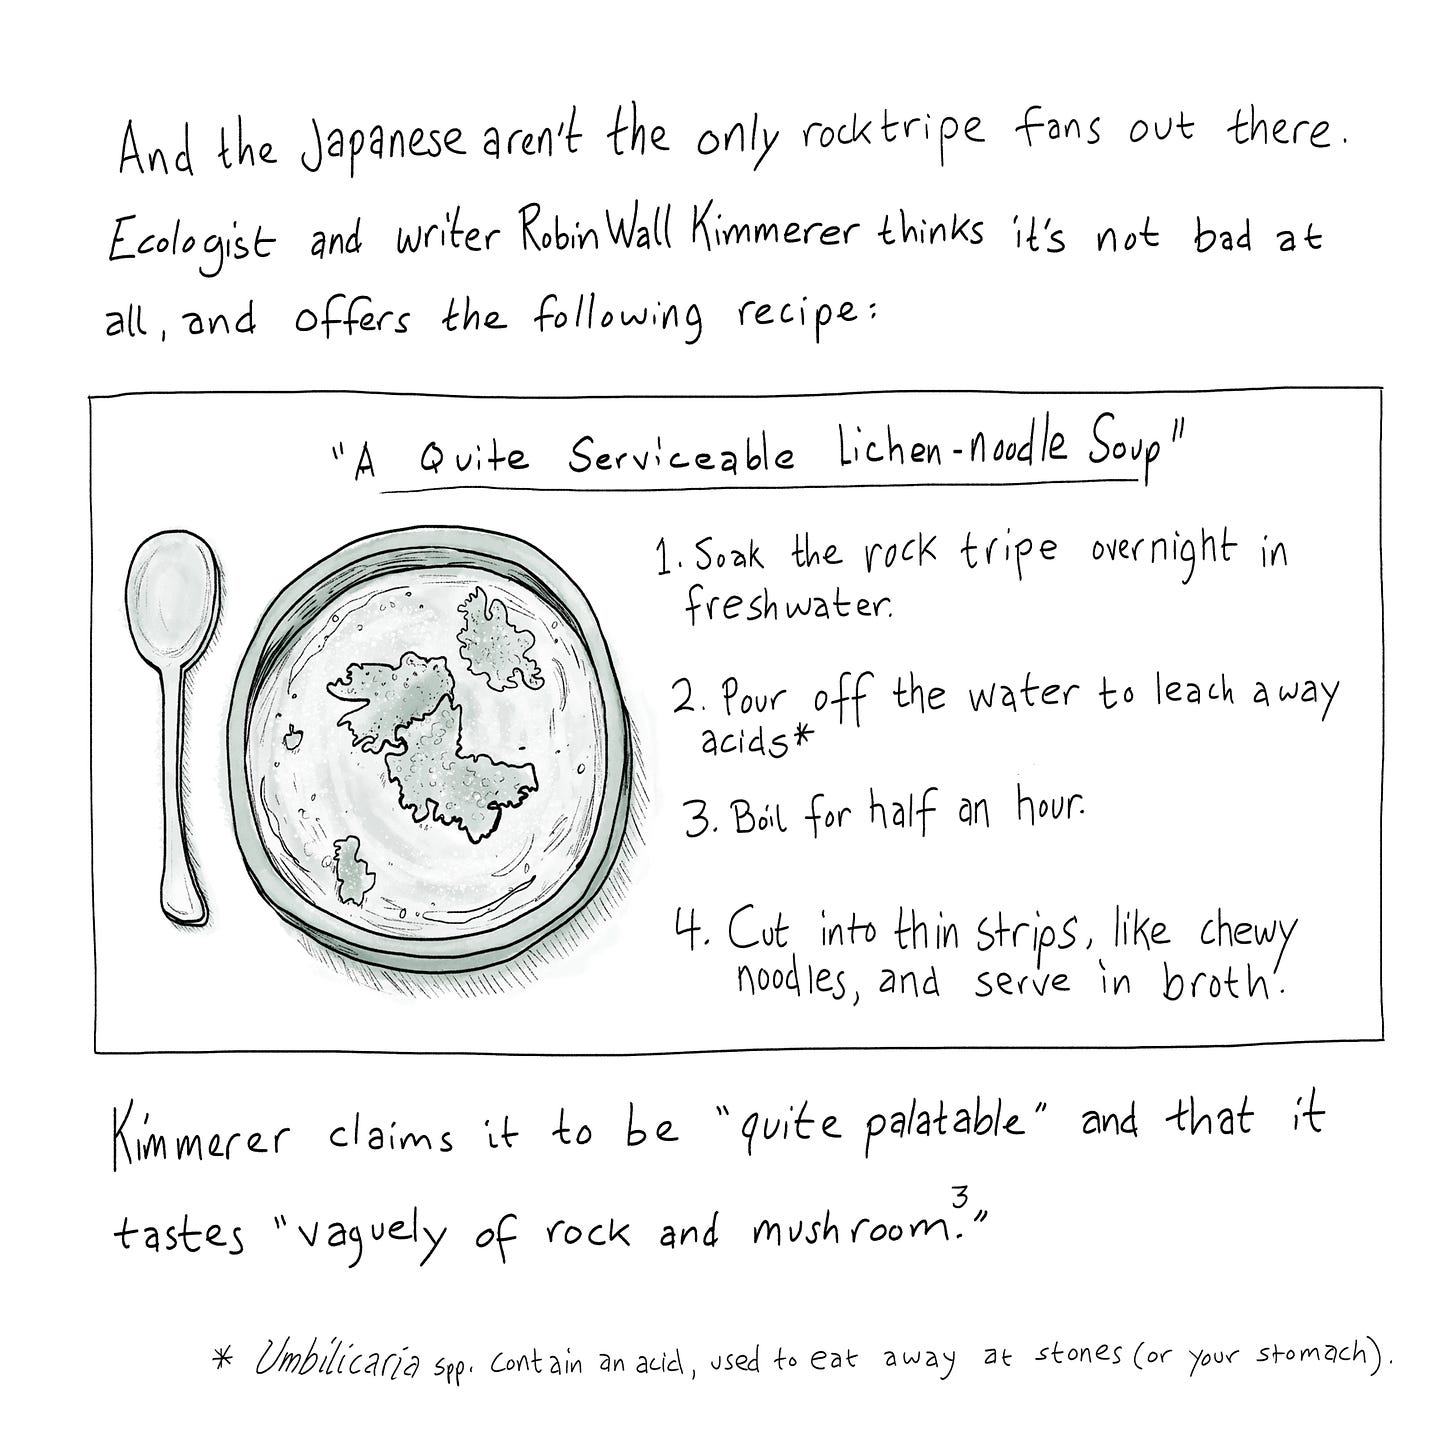 And the Japanese aren't the only rock tripe fans out there.
Ecologist and writer Robin Wall Kimmerer thinks it's not bad at
all, and offers the following recipe:
"A Quite Serviceable Lichen-noodle Soup"
1. Soak the rock tripe overnight in
freshwater.
2. Pour off the water to leach away
acids*
3. Boil for half an hour.
4. Cut into thin strips, like chewy
noodles, and serve in broth!
Kimmerer claims it to be "quite palatable" and that it
tastes "vaguely of rock and mushroom.³"
* Umbilicaria spp. contain an acid, used to eat away at stones (or your stomach).